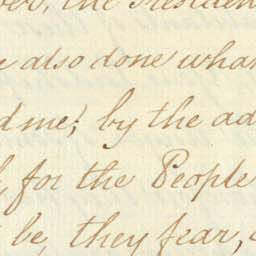 the Presiden
also done wha
me; by the ad
for the People
be, they fear,